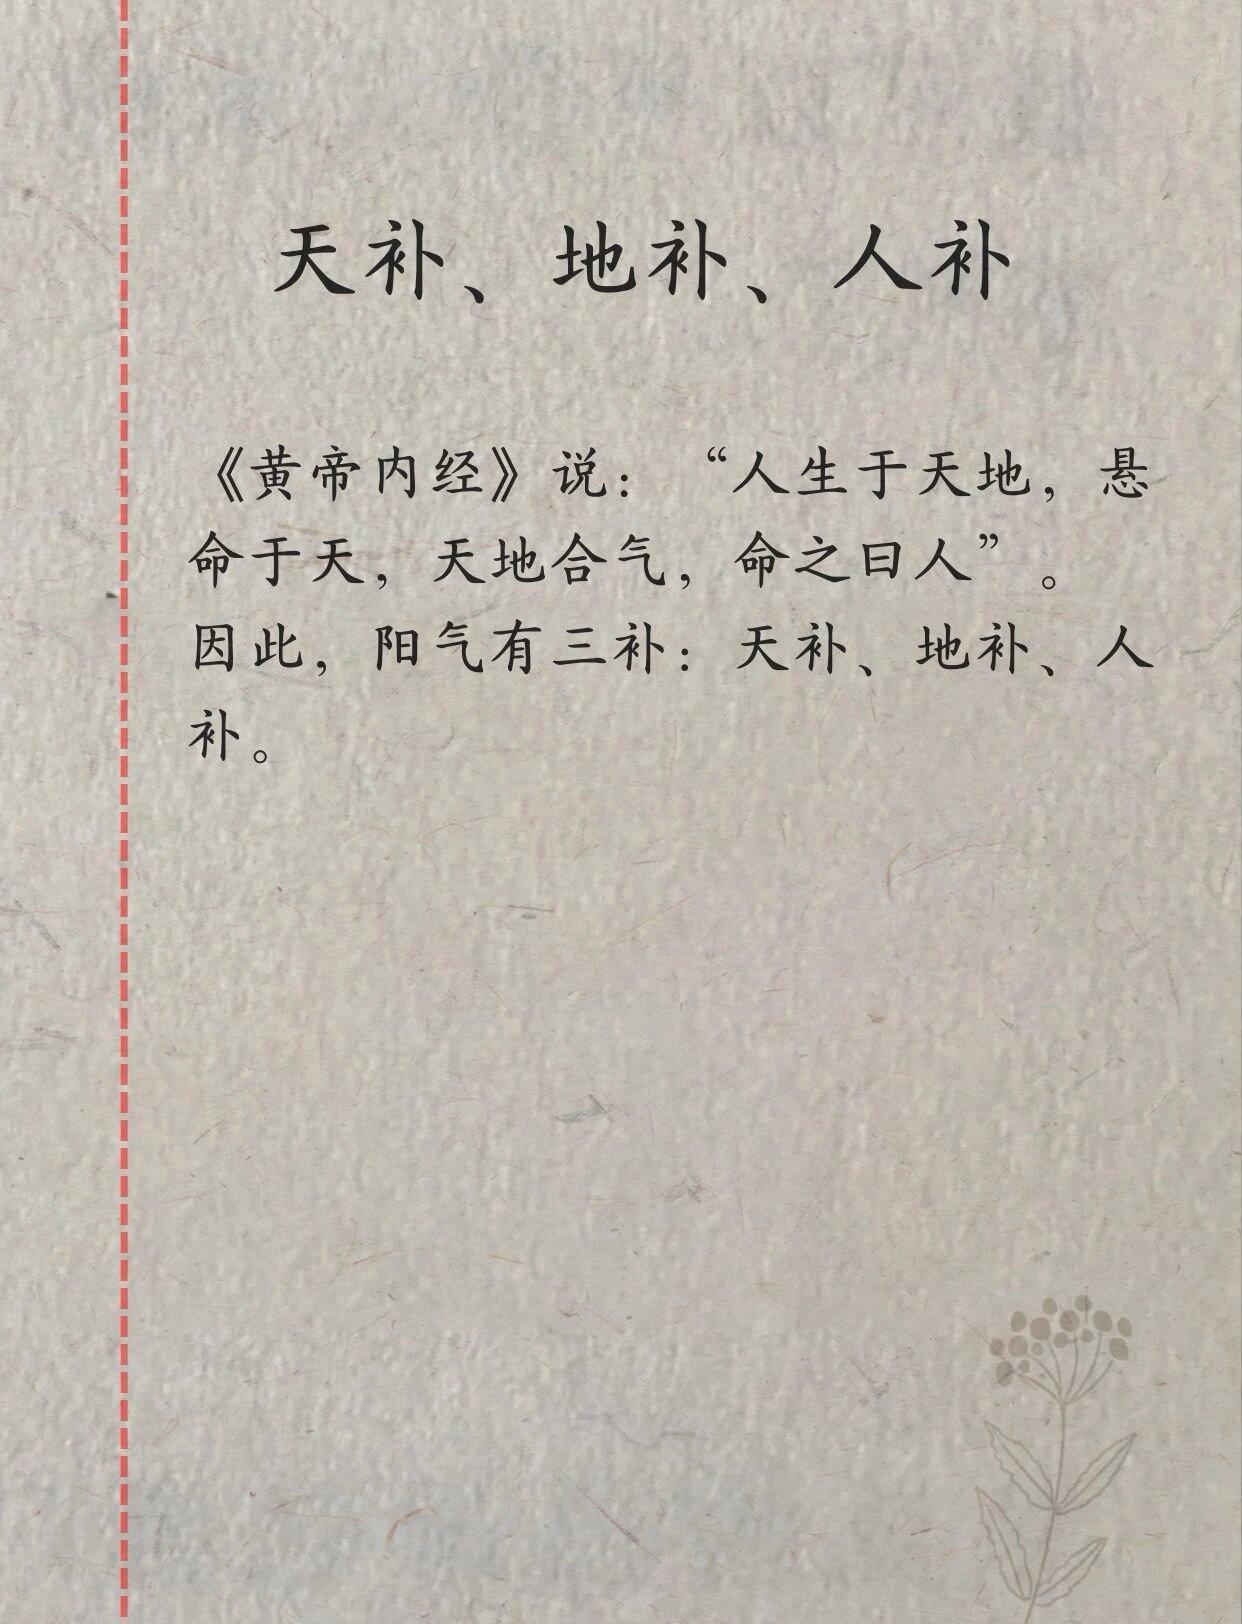 天补、地补、人补
《黄帝内经》说：“人生于天地，悬
命于天，天地合气，命之曰人”。
因此，阳气有三补：天补、地补、人
补。